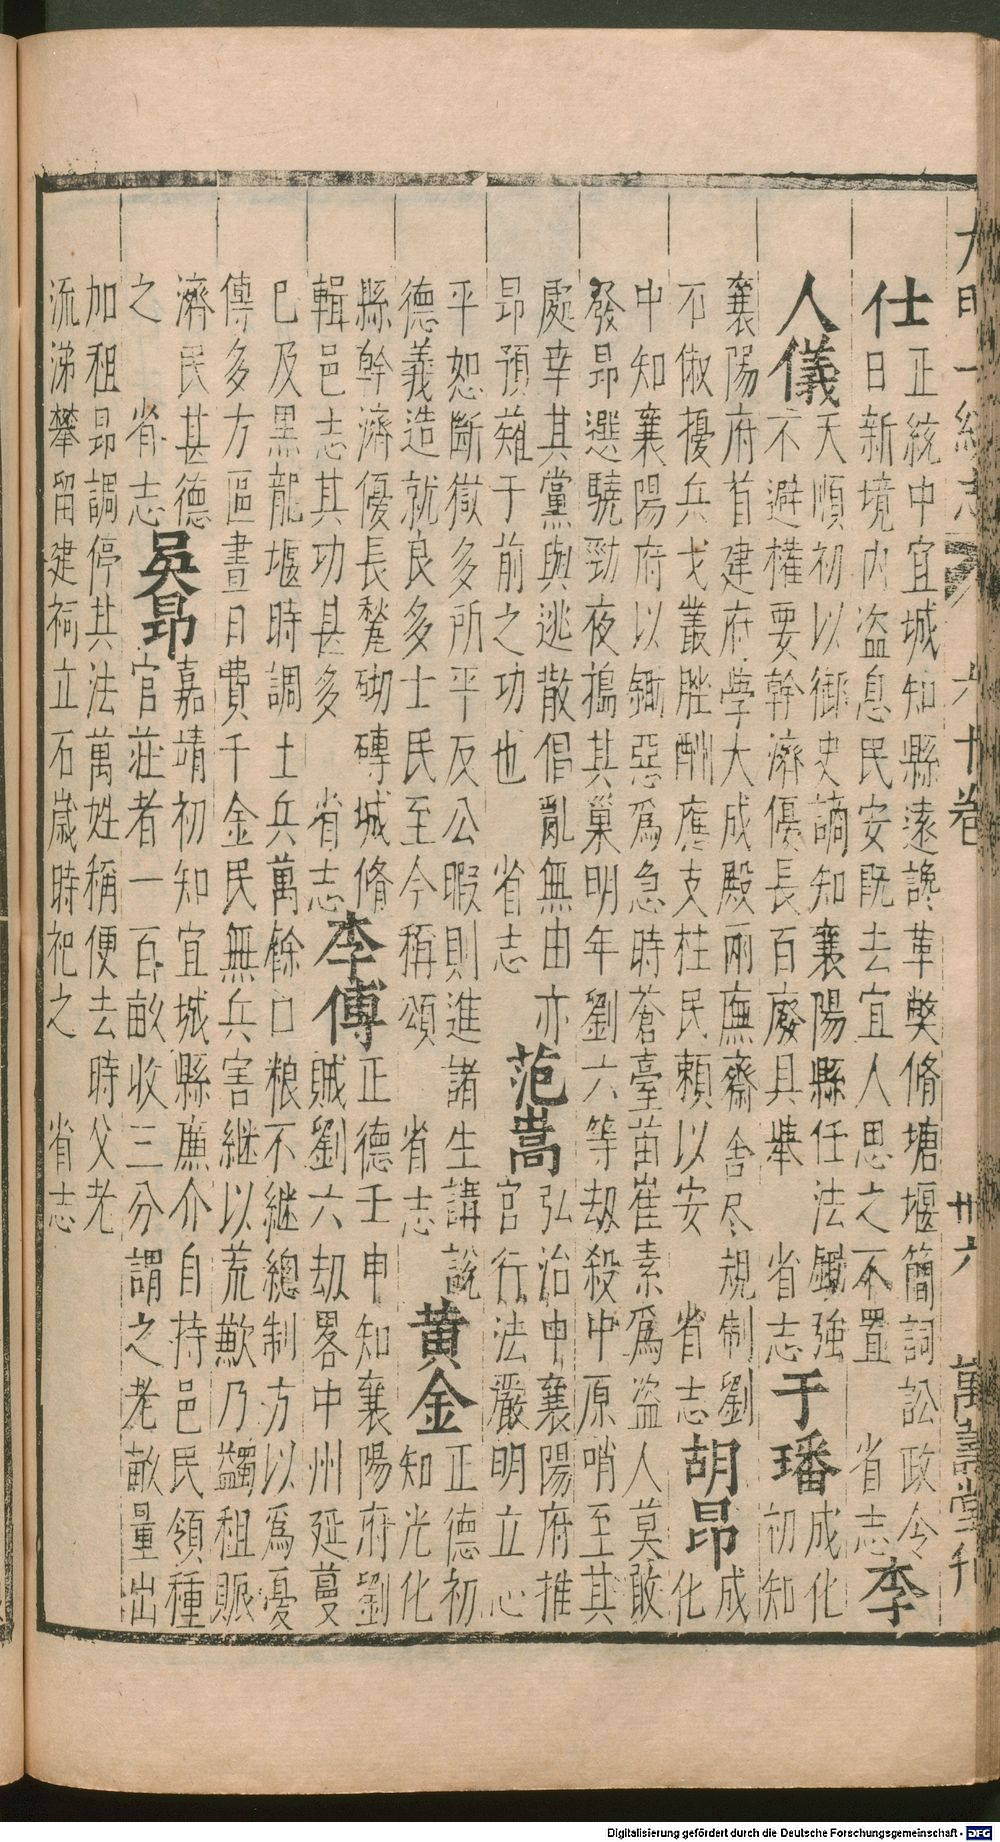 大明一統志 六十卷 卅六 萬壽堂刊
仕
正統中宜城知縣遠讒革獘脩塘堰簡詞訟政令
日新境內盜息民安既去宜人思之不置 省志
李
人儀
天順初以御史謫知襄陽縣任法鋤強
不避權要幹濟優長百廢具舉 省志
于璠
成化
初知
襄陽府首建府學大成殿兩廡齋舍尽規制劉
不俶擾兵戈叢脞酬應支柱民賴以安 省志
胡昂
成
化
中知襄陽府以鋤惡爲急時蒼臺苗崔素爲盜人莫敢
發昂選驍勁夜搗其巢明年劉六等刼殺中原哨至其
處幸其黨與逃散倡亂無由亦
昂預薙于前之功也 省志
范嵩
弘治中襄陽府推
官行法嚴明立心
平恕斷獄多所平反公暇則進諸生講說
德義造就良多士民至今稱頌 省志
黄金
正德初
知光化
縣幹濟優長甃砌磚城脩
輯邑志其功甚多 省志
李傅
正德壬申知襄陽府劉
賊劉六刼畧中州延蔓
已及黑龍堰時調土兵萬餘口粮不継總制方以爲憂
傅多方區畫日費千金民無兵害継以荒歉乃蠲租賑
濟民甚德
之 省志
吳昂
嘉靖初知宜城縣廉介自持邑民領種
官莊者一百畝收三分謂之老畝量出
加租昂調停其法萬姓稱便去時父老
流涕攀留建祠立石歳時祀之 省志
Digitalisierung gefördert durch die Deutsche Forschungsgemeinschaft - DFG